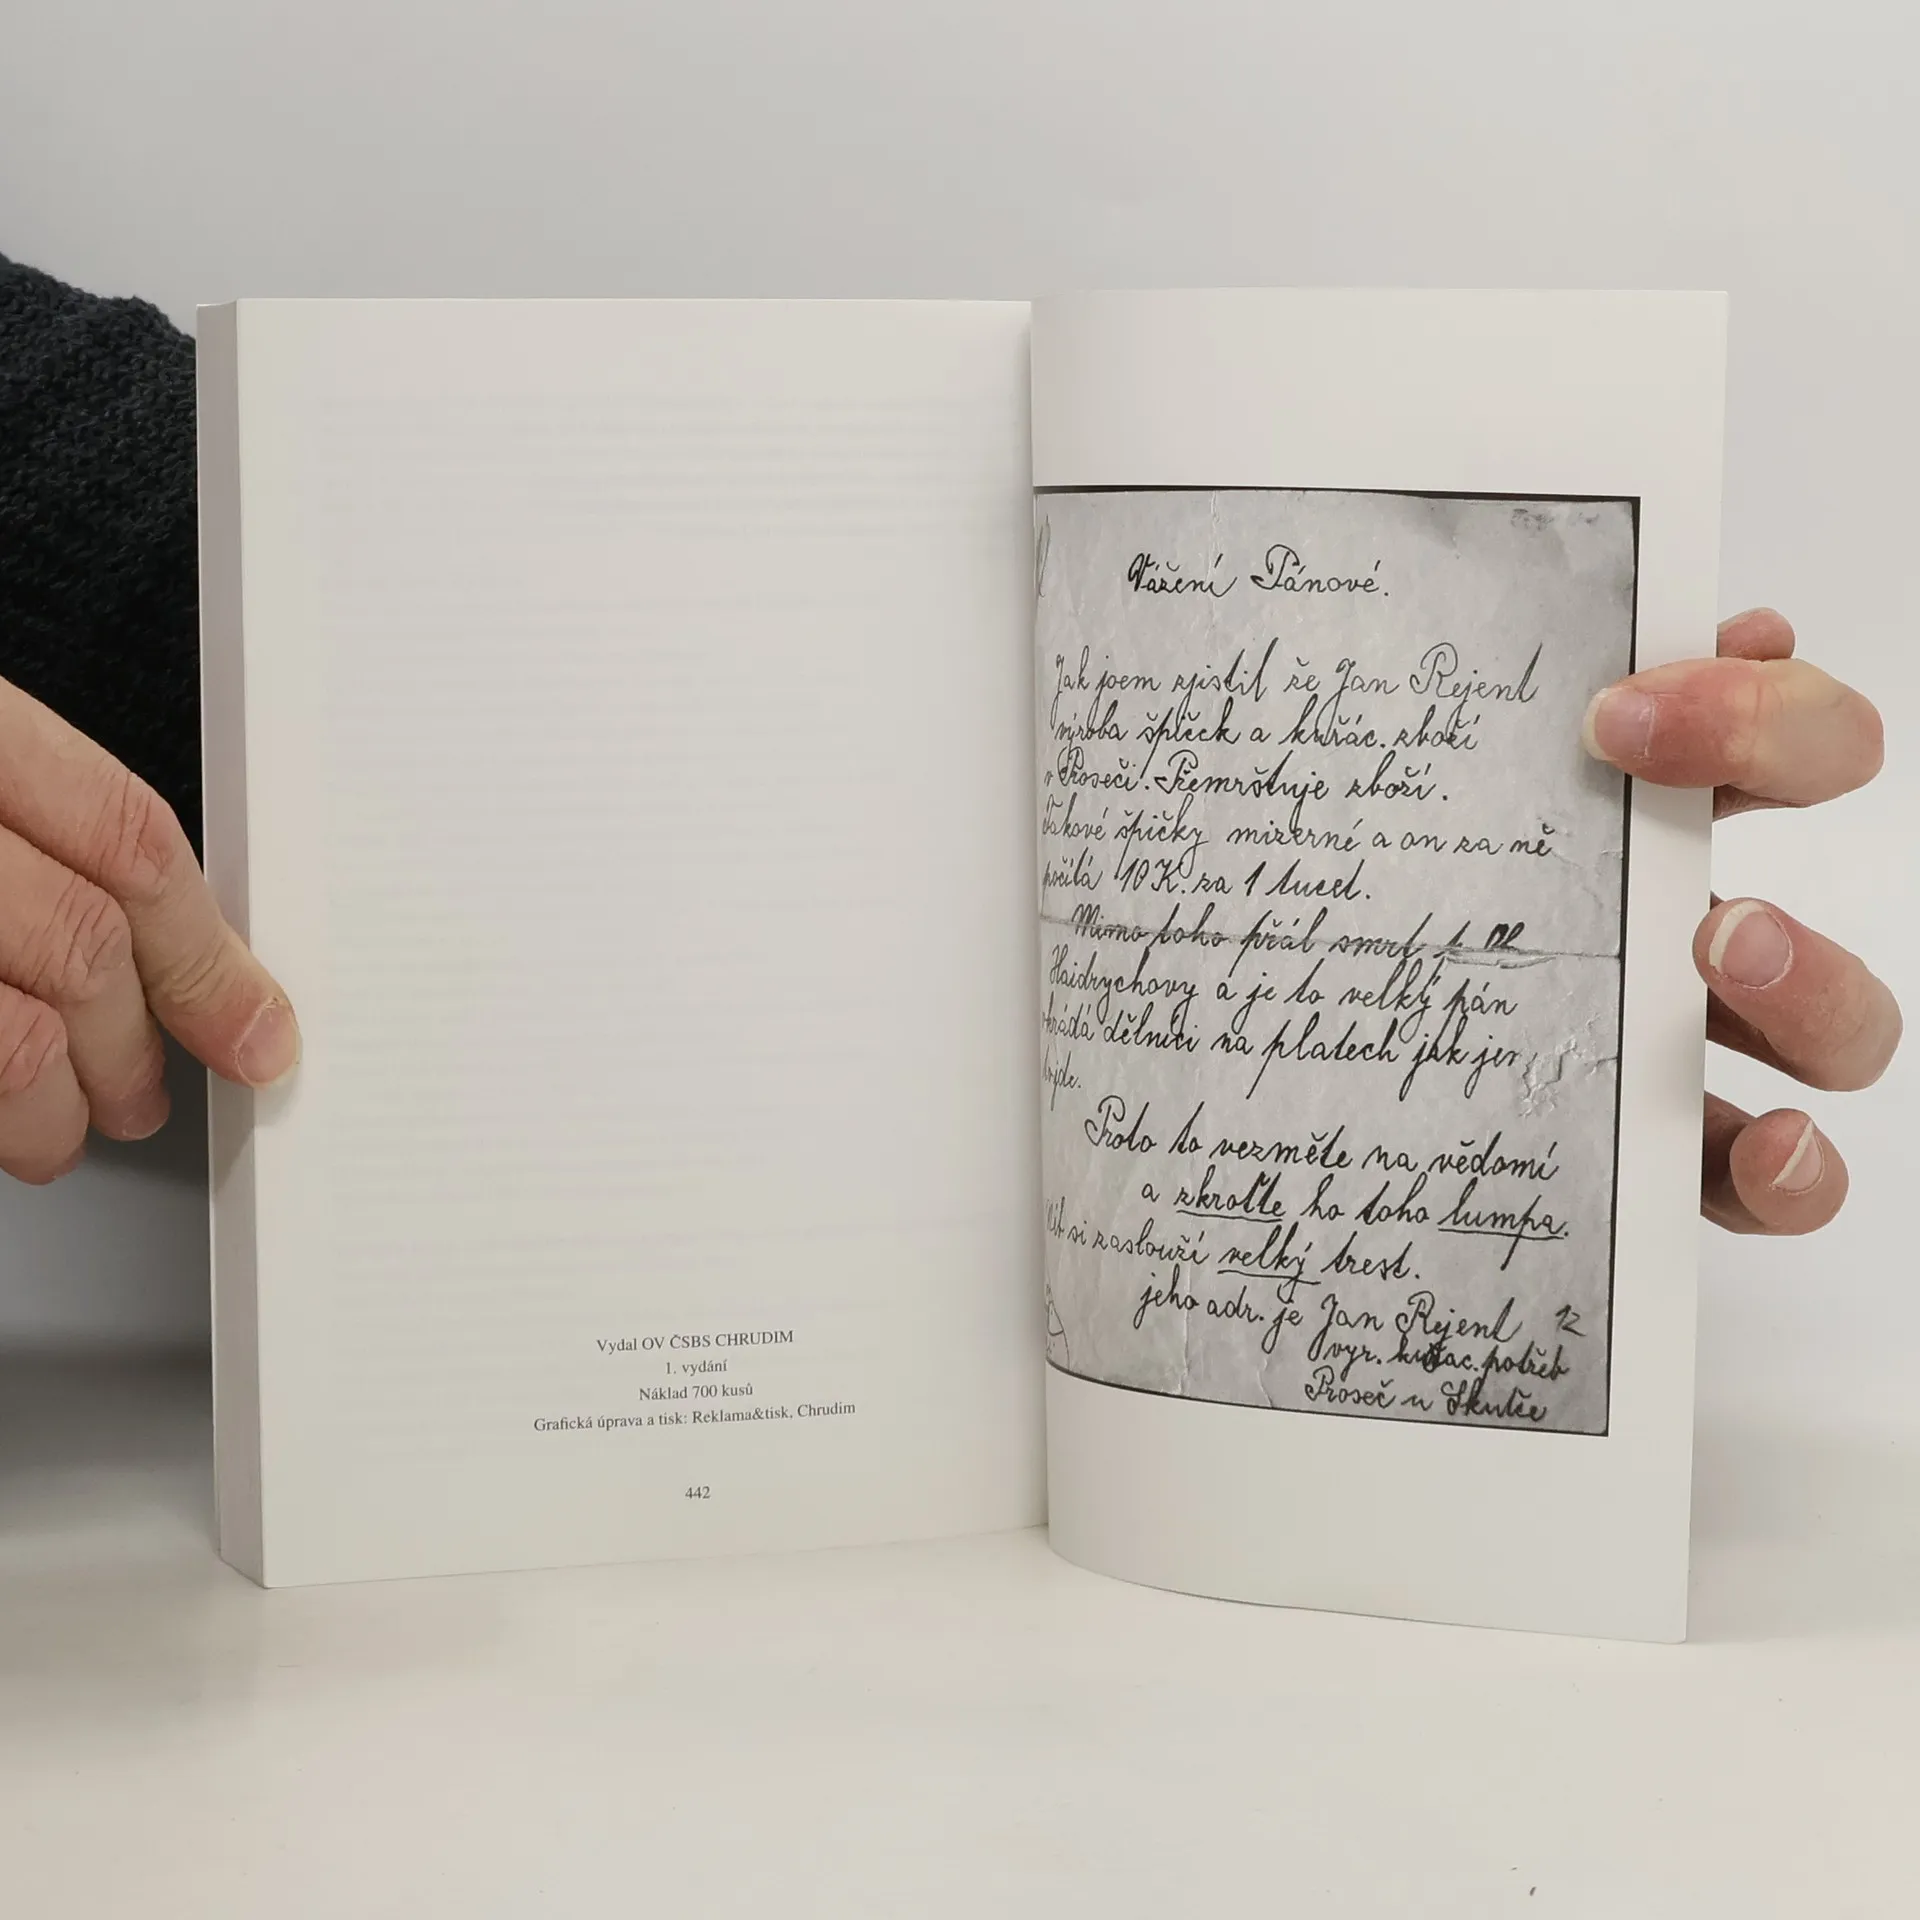 Vydal OV ČSBS CHRUDIM
1. vydání
Náklad 700 kusů
Grafická úprava a tisk: Reklama&tisk, Chrudim
442
Vážení Pánové.
Jak jsem zjistil že Jan Rejent
výroba špiček a kuřác. zboží
v Proseči. Přemrštuje zboží.
Takové špičky mizerné a on za ně
počítá 10 K. za 1 tucet.
Mimo toho přál smrt
Haidrychovy a je to velký pán
okrádá dělníci na platech jak jen
Proto to vezměte na vědomí
a zkroťte ho toho lumpa.
si zaslouží velký trest.
jeho adr. je Jan Rejent 12
vyr. kuřac. potřeb
Proseč u Skutče